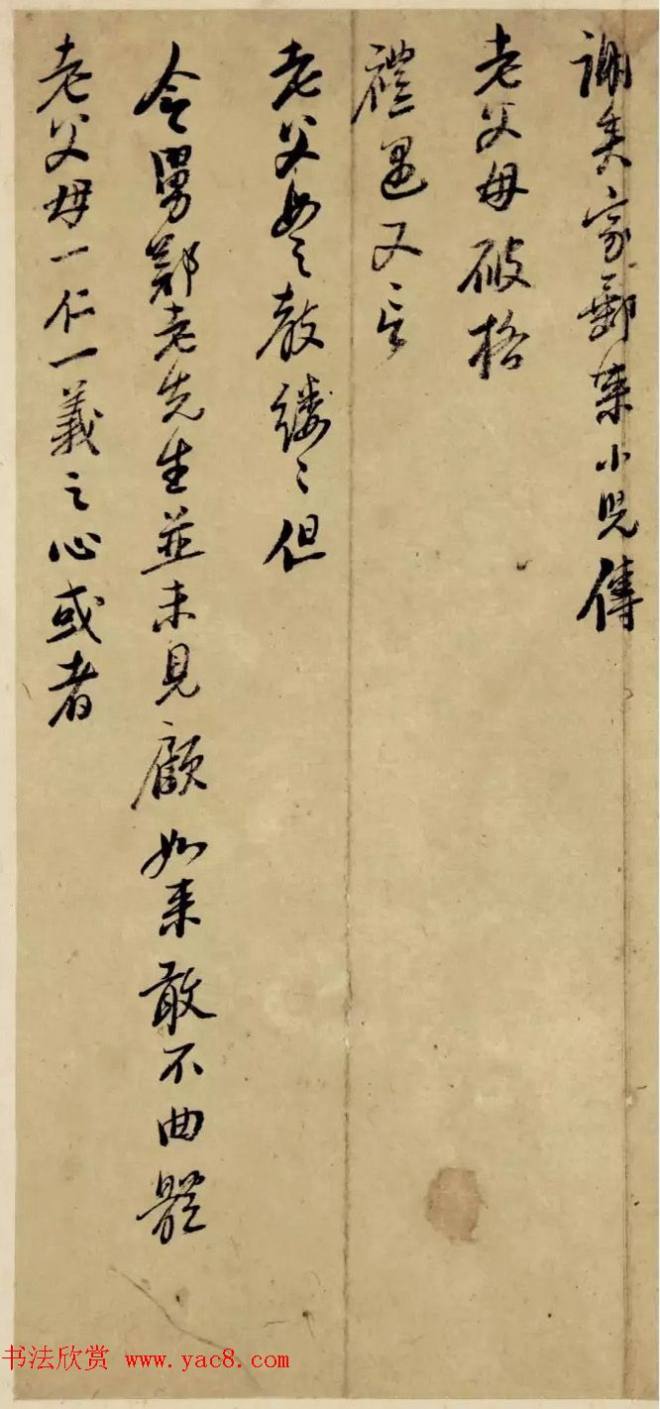 謝矣家郵來小兒傳
老父母破格
禮遇又
老父母教縷〻但
令舅鄭老先生並未見顧如來敢不曲體
老父母一仁一義之心或者
书法欣赏 www.yac8.com